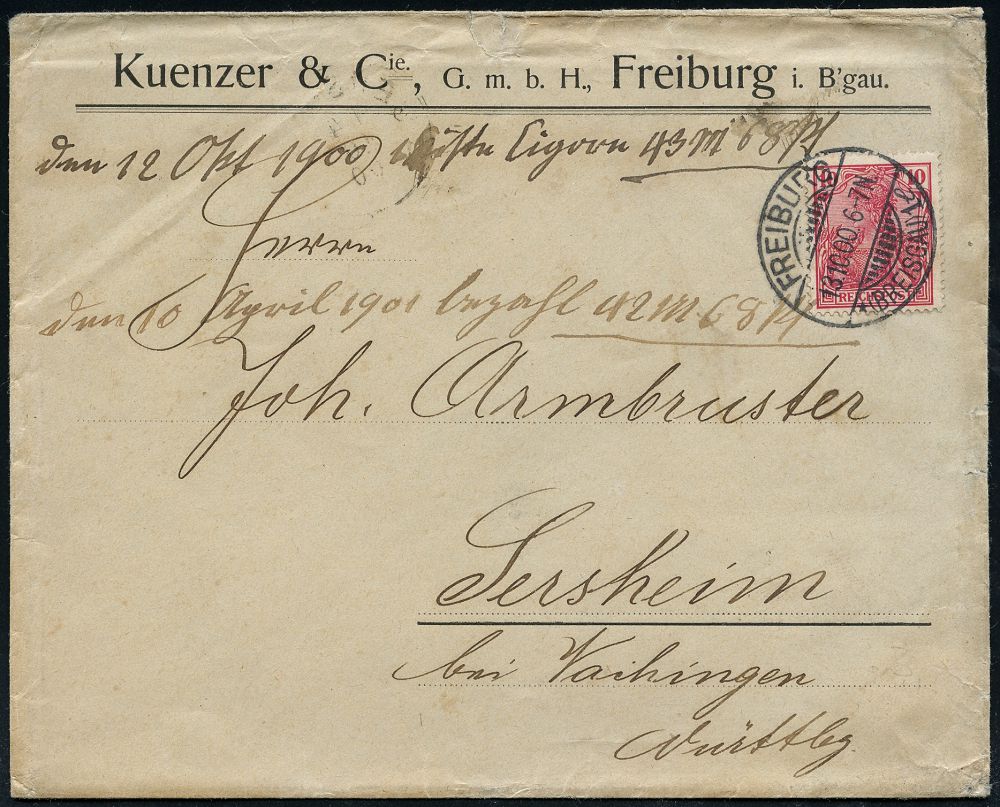 Kuenzer & Cie., G. m. b. H., Freiburg i. B'gau.
den 12 Okt 1900 43 M 68 Pf
Herrn
den 10 April 1901 bezahl 42 M 68 Pf
Joh. Armbruster
Sersheim
bei Vaihingen
Württbg
FREIBURG
13.10.00. 6-7N.
*(BREISGAU) 2
10